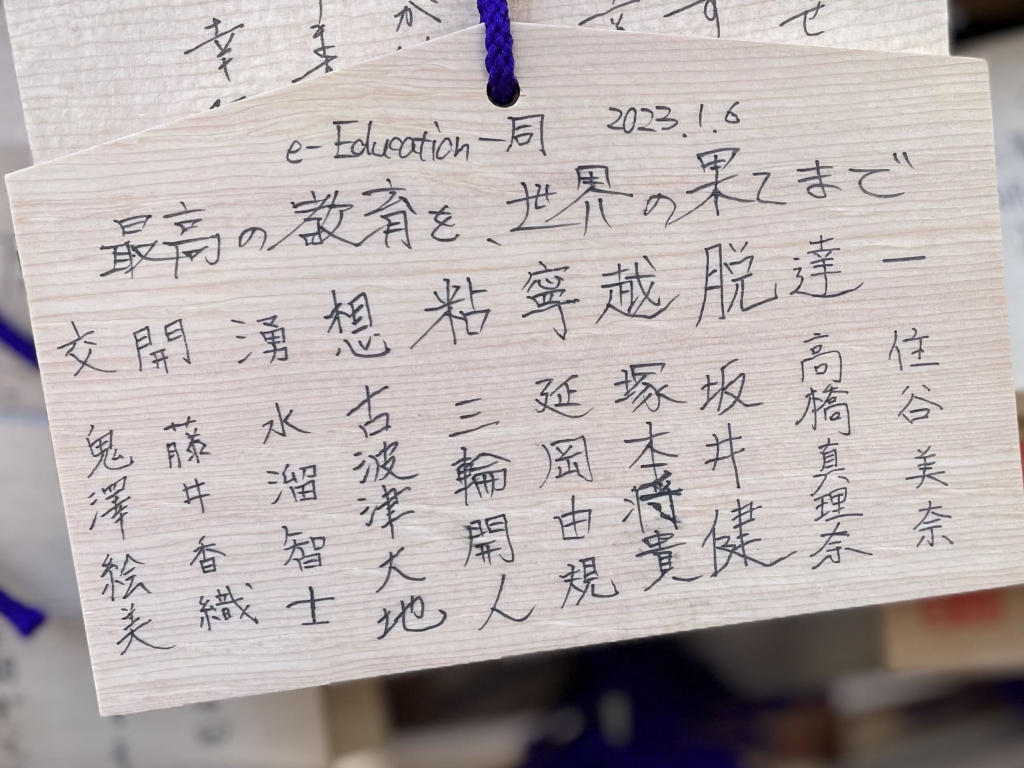 e-Education一同 2023.1.6
最高の教育を、世界の果てまで
一 住谷美奈
達 高橋真理奈
脱 坂井健
越 塚本将貴
寧 延岡由規
粘 三輪開人
想 古波津大地
湧 水溜智士
開 藤井香織
交 鬼澤絵美